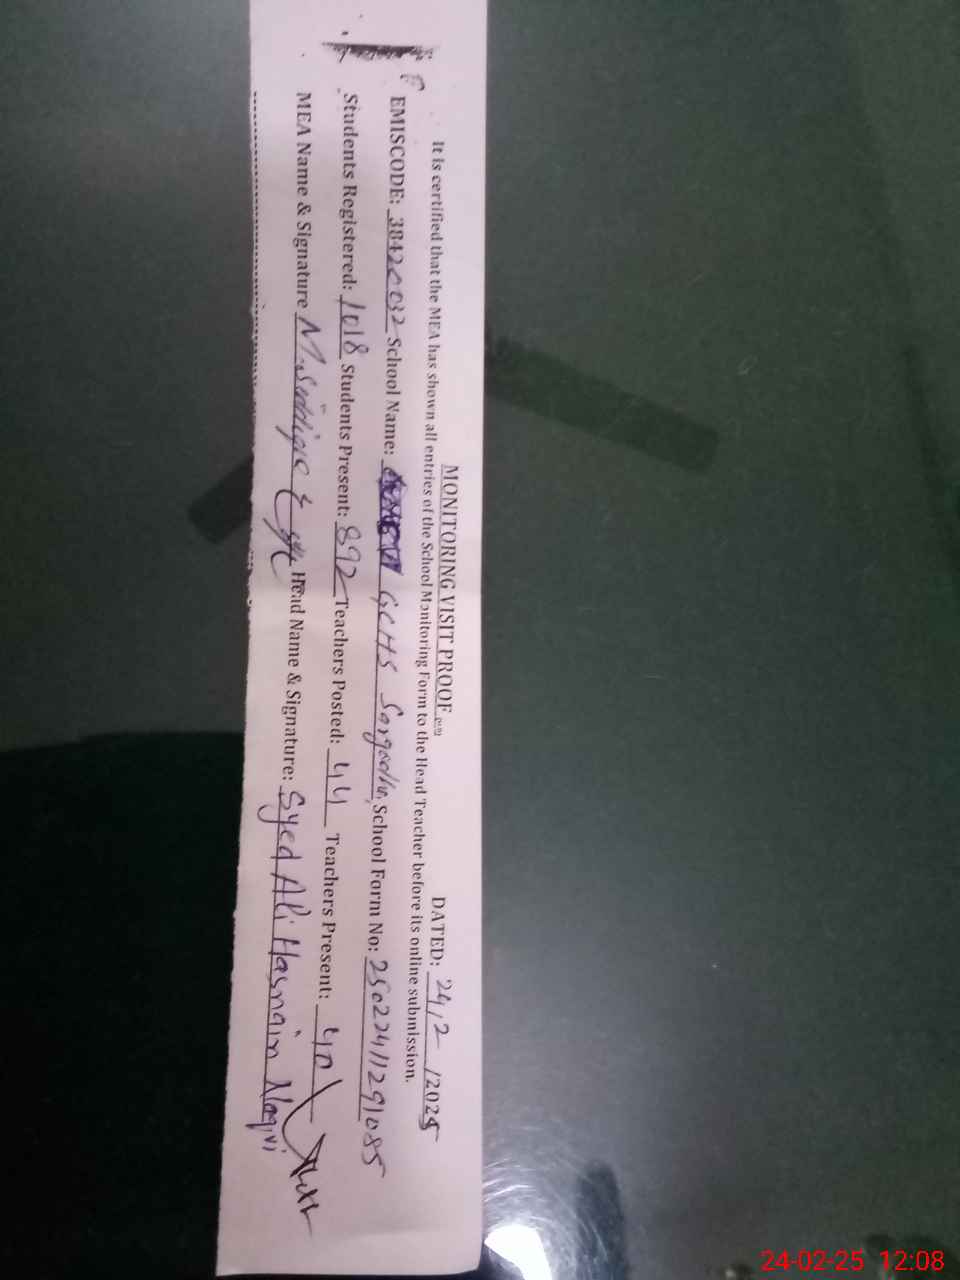 MONITORING VISIT PROOF
DATED: 24/2/2025
It is certified that the MEA has shown all entries of the School Monitoring Form to the Head Teacher before its online submission.
EMISCODE: 38420032 School Name: GCHS Sargodha, School Form No: 250224111291085
Students Registered: 1018 Students Present: 892 Teachers Posted: 44 Teachers Present: 40
MEA Name & Signature M. Siddique Head Name & Signature: Syed Ali Hasnain Naqvi
24-02-25 12:08